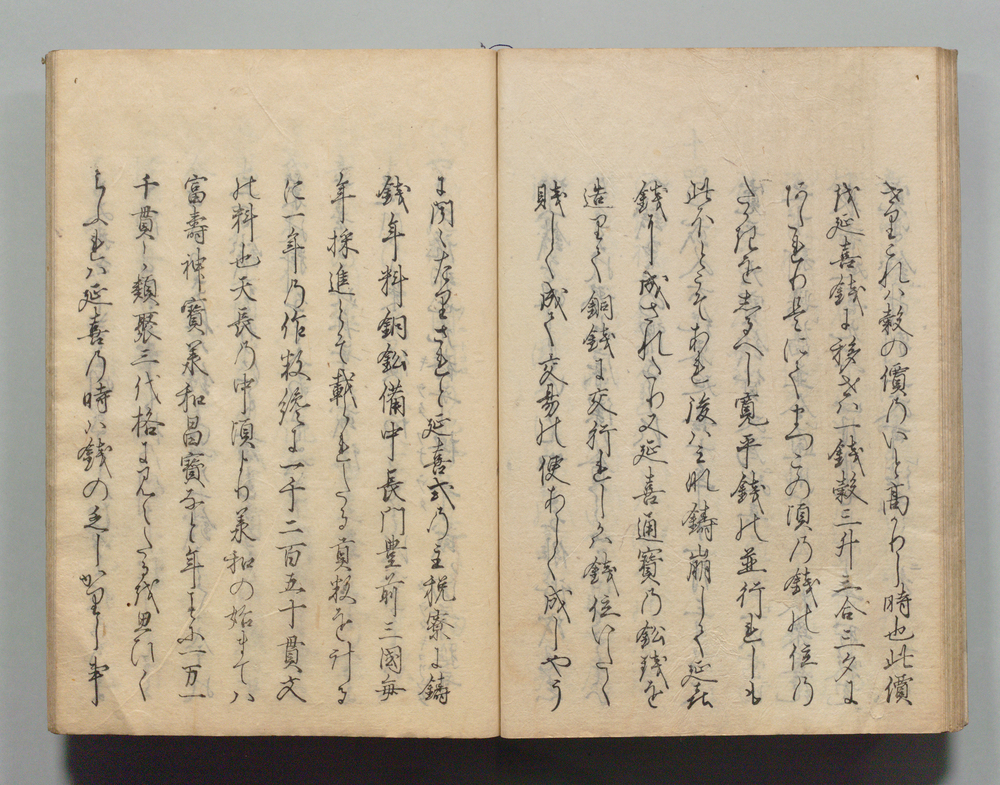 されとこれハ穀の價乃いと高かりし時也此價
我延喜錢に移せハ一錢穀三升三合三夕に
あたれり是にてかつこの頃乃錢の位乃
たかきをしるへし寛平錢の並行れしも
此ほとにてそあれ後ハミれ鋳崩して延喜
錢に成されたり又延喜通寳乃鈆錢を
造りて銅錢に交行れしかハ錢位いたく
賎しく成て交易の便あしく成しやう
に聞えたりされと延喜式乃主税寮に鋳
錢年料銅鈆備中長門豊前三國毎
年採進とて載られたる貢数を計る
に一年乃作数纔に一千二百五十貫文
の料也天長乃中頃より羕和の始まてハ
富壽神寳羕和昌寳なと年ことに一万一
千貫と類聚三代格に見えたるを思ひく
らふれハ延喜乃時ハ錢の乏しかりし事